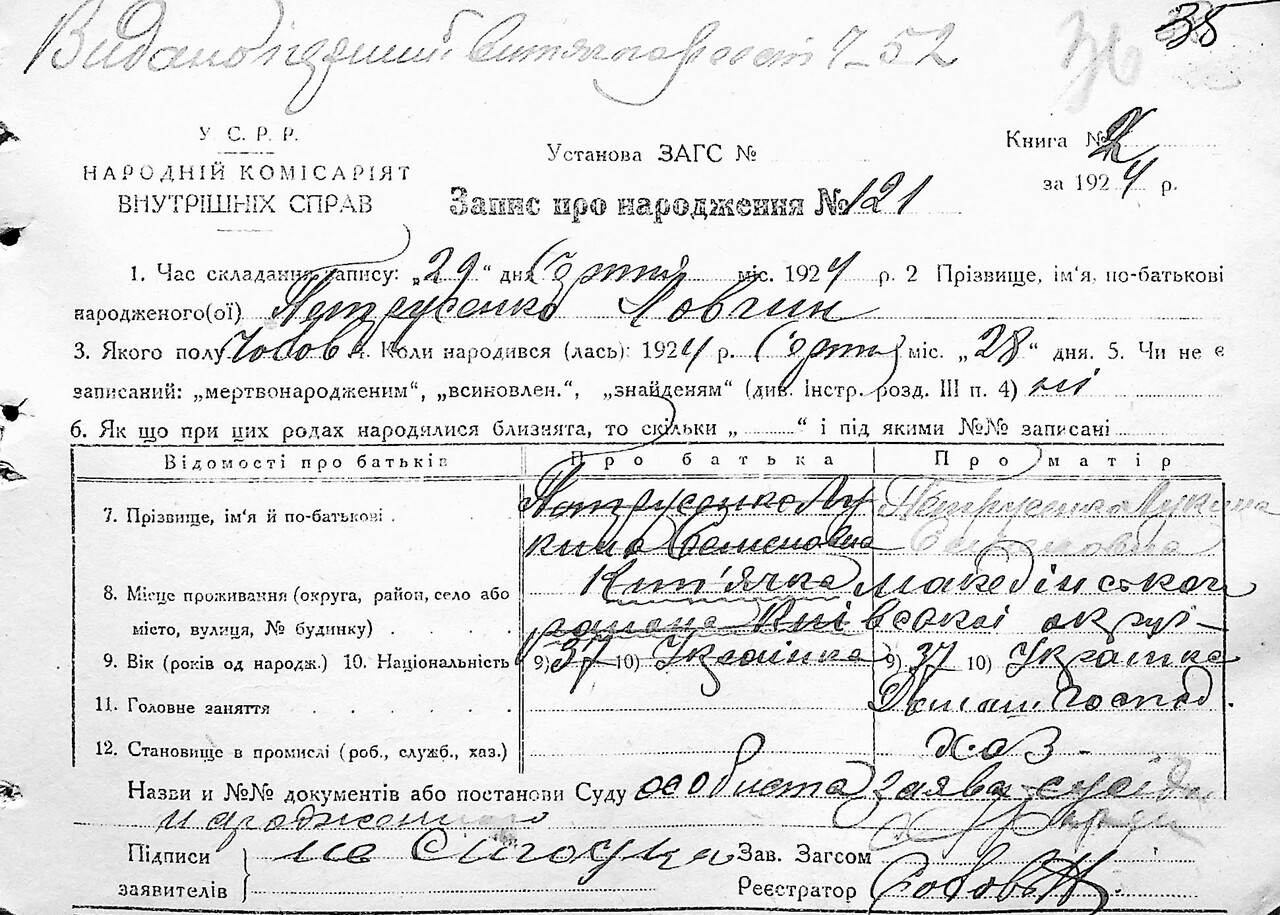 Видано 7-52
36 35
У С. Р. Р.
НАРОДНІЙ КОМІСАРІЯТ
ВНУТРІШНІХ СПРАВ
Установа ЗАГС №
Книга № 2
за 1924 р.
Запис про народження № 121
1. Час складання запису: „29“ дня Серпня міс. 1924 р. 2 Прізвище, ім'я, по-батькові
народженого(ої) Петрусенко Ловгин
3. Якого полу Чолов 4. Коли народився (лась): 1924 р. Серпня міс. „28“ дня. 5. Чи не є
записаний: „мертвонародженим“, „всиновлен.“, „знайденям“ (див. Інстр. розд. III п. 4) ні
6. Як що при цих родах народилися близнята, то скільки „ “ і під якими №№ записані
Відомості про батьків Про батька Про матір
7. Прізвище, ім'я й по-батькові Петрусенко Лукина Семеновна Петрусенко Лукина
8. Місце проживання (округа, район, село або
місто, вулиця, № будинку) району Київської округ
9. Вік (років од народж.) 10. Національність 9) 37 10) Українка 9) 37 10) Українка
11. Головне заняття Домаш. господ.
12. Становище в промислі (роб., служб., хаз.) хаз.
Назви и №№ документів або постанови Суду особиста заява
Підписи
заявителів
Зав. Загсом
Реєстратор